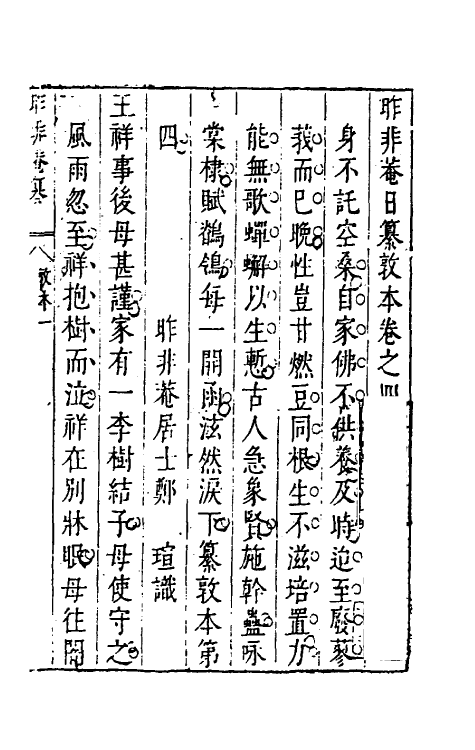 昨非菴日纂敦本卷之四
身不託空桑自家佛不供養及時迨至廢蓼
莪而已晚性豈甘燃豆同根生不滋培置力
能無歌蠏以生慙古人急象賢施幹蠱咏
棠棣賦鶺鴒每一開函泫然淚下纂敦本第
四
昨非菴居士鄭瑄識
王祥事後母甚謹家有一李樹結子母使守之
風雨忽至祥抱樹而泣祥在別牀眠母往闇
昨非菴纂
八
敦本一